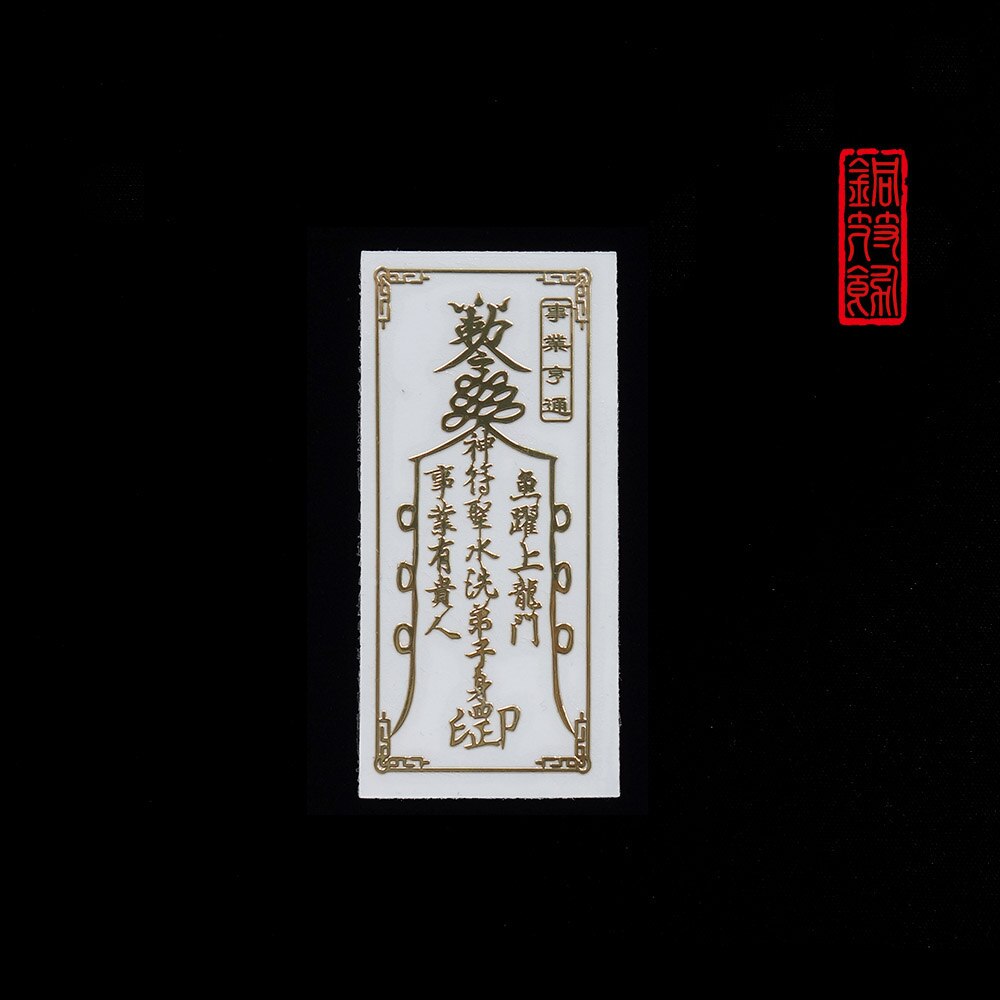 事業亨通
敕令
魚躍上龍門
神符聖水洗弟子身
事業有貴人